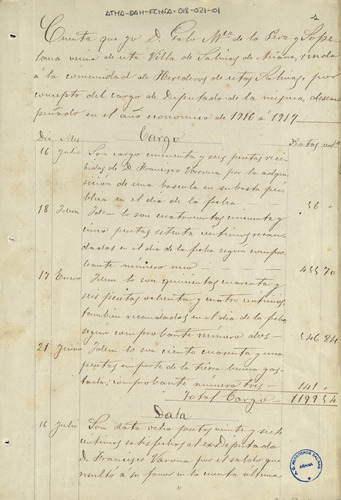 ATHA-DAH-FCHSA-018-021-01
Cuenta que yo D. Galo Mª de la Peza y Sope
lana vecino de esta Villa de Salinas de Añana, rindo
á la comunidad de Herederos de estas Salinas por
concepto del cargo de Diputado de la misma, desem
peñado en el año economico de 1916 á 1917
Dia Mes Cargo Pesetas
16 Julio Son cargo cincuenta y seis pesetas reci
bidas de D. Francisco Varona por la adqui
sición de una bascula en subasta pú
blica en el dia de la fecha 56 "
18 Idem Idem lo son cuatrocientas cincuenta y
cinco pesetas setenta centimos recau
dadas en el dia de la fecha segun compro
bante número uno 455 70
17 Enero Idem lo son quinientas cuarenta y
seis pesetas ochenta y cuatro centimos
tambien recaudadas en el dia de la fecha
segun comprobante número dos 546 84
21 Junio Idem lo son ciento cuarenta y una
pesetas importe de la tierra
comprobante número tres 141 "
Total Cargo 1199 54
Data
16 Julio Son data ocho pesetas veinte y siete
centimos satisfechas al ex Diputado
D. Francisco Varona por el saldo que
resultó a su favor en la cuenta última
AÑANA